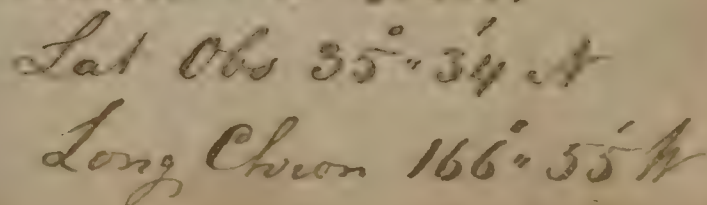 Lat Obs 35°" 34' N
Long Chron 166°" 55' W